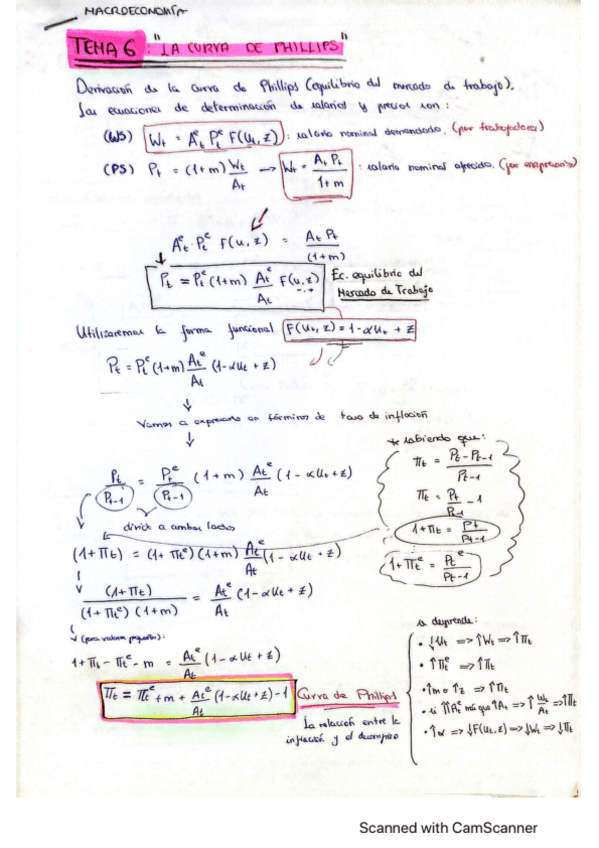 MACROECONOMÍA
TEMA 6 : "LA CURVA DE PHILLIPS"
Derivación de la curva de Phillips (equilibrio del mercado de trabajo).
Las ecuaciones de determinación de salarios y precios son:
(WS) Wt = A^e_t P^e_t F(Ut, z) : salario nominal demandado. (por trabajadores)
(PS) Pt = (1+m) Wt/At → Wt = At Pt/(1+m) : salario nominal ofrecido. (por empresarios)
A^e_t · P^e_t F(u, z) = At Pt/(1+m)
Pt = P^e_t (1+m) A^e_t/At F(u, z) Ec. equilibrio del Mercado de Trabajo
Utilizaremos la forma funcional F(Ut, z) = 1 - αUt + z
Pt = P^e_t (1+m) A^e_t/At (1 - αUt + z)
Vamos a expresarlo en términos de tasa de inflación
Pt/Pt-1 = P^e_t/Pt-1 (1+m) A^e_t/At (1 - αUt + z)
divide a ambos lados
* sabiendo que:
πt = (Pt - Pt-1)/Pt-1
πt = Pt/Pt-1 - 1
1 + πt = Pt/Pt-1
1 + π^e_t = P^e_t/Pt-1
(1+πt) = (1+π^e_t)(1+m) A^e_t/At (1 - αUt + z)
(1+πt)/((1+π^e_t)(1+m)) = A^e_t/At (1 - αUt + z)
(para valores pequeños):
1 + πt - π^e_t - m = A^e_t/At (1 - αUt + z)
πt = π^e_t + m + A^e_t/At (1 - αUt + z) - 1 Curva de Phillips
La relación entre la
inflación y el desempleo
se deprende:
• ↓Ut => ↑Wt => ↑πt
• ↑π^e_t => ↑πt
• ↑m o ↑z => ↑πt
• si ↑A^e_t más que ↑At => ↑ Wt/At => ↑πt
• ↑α => ↓F(Ut, z) => ↓Wt => ↓πt
Scanned with CamScanner